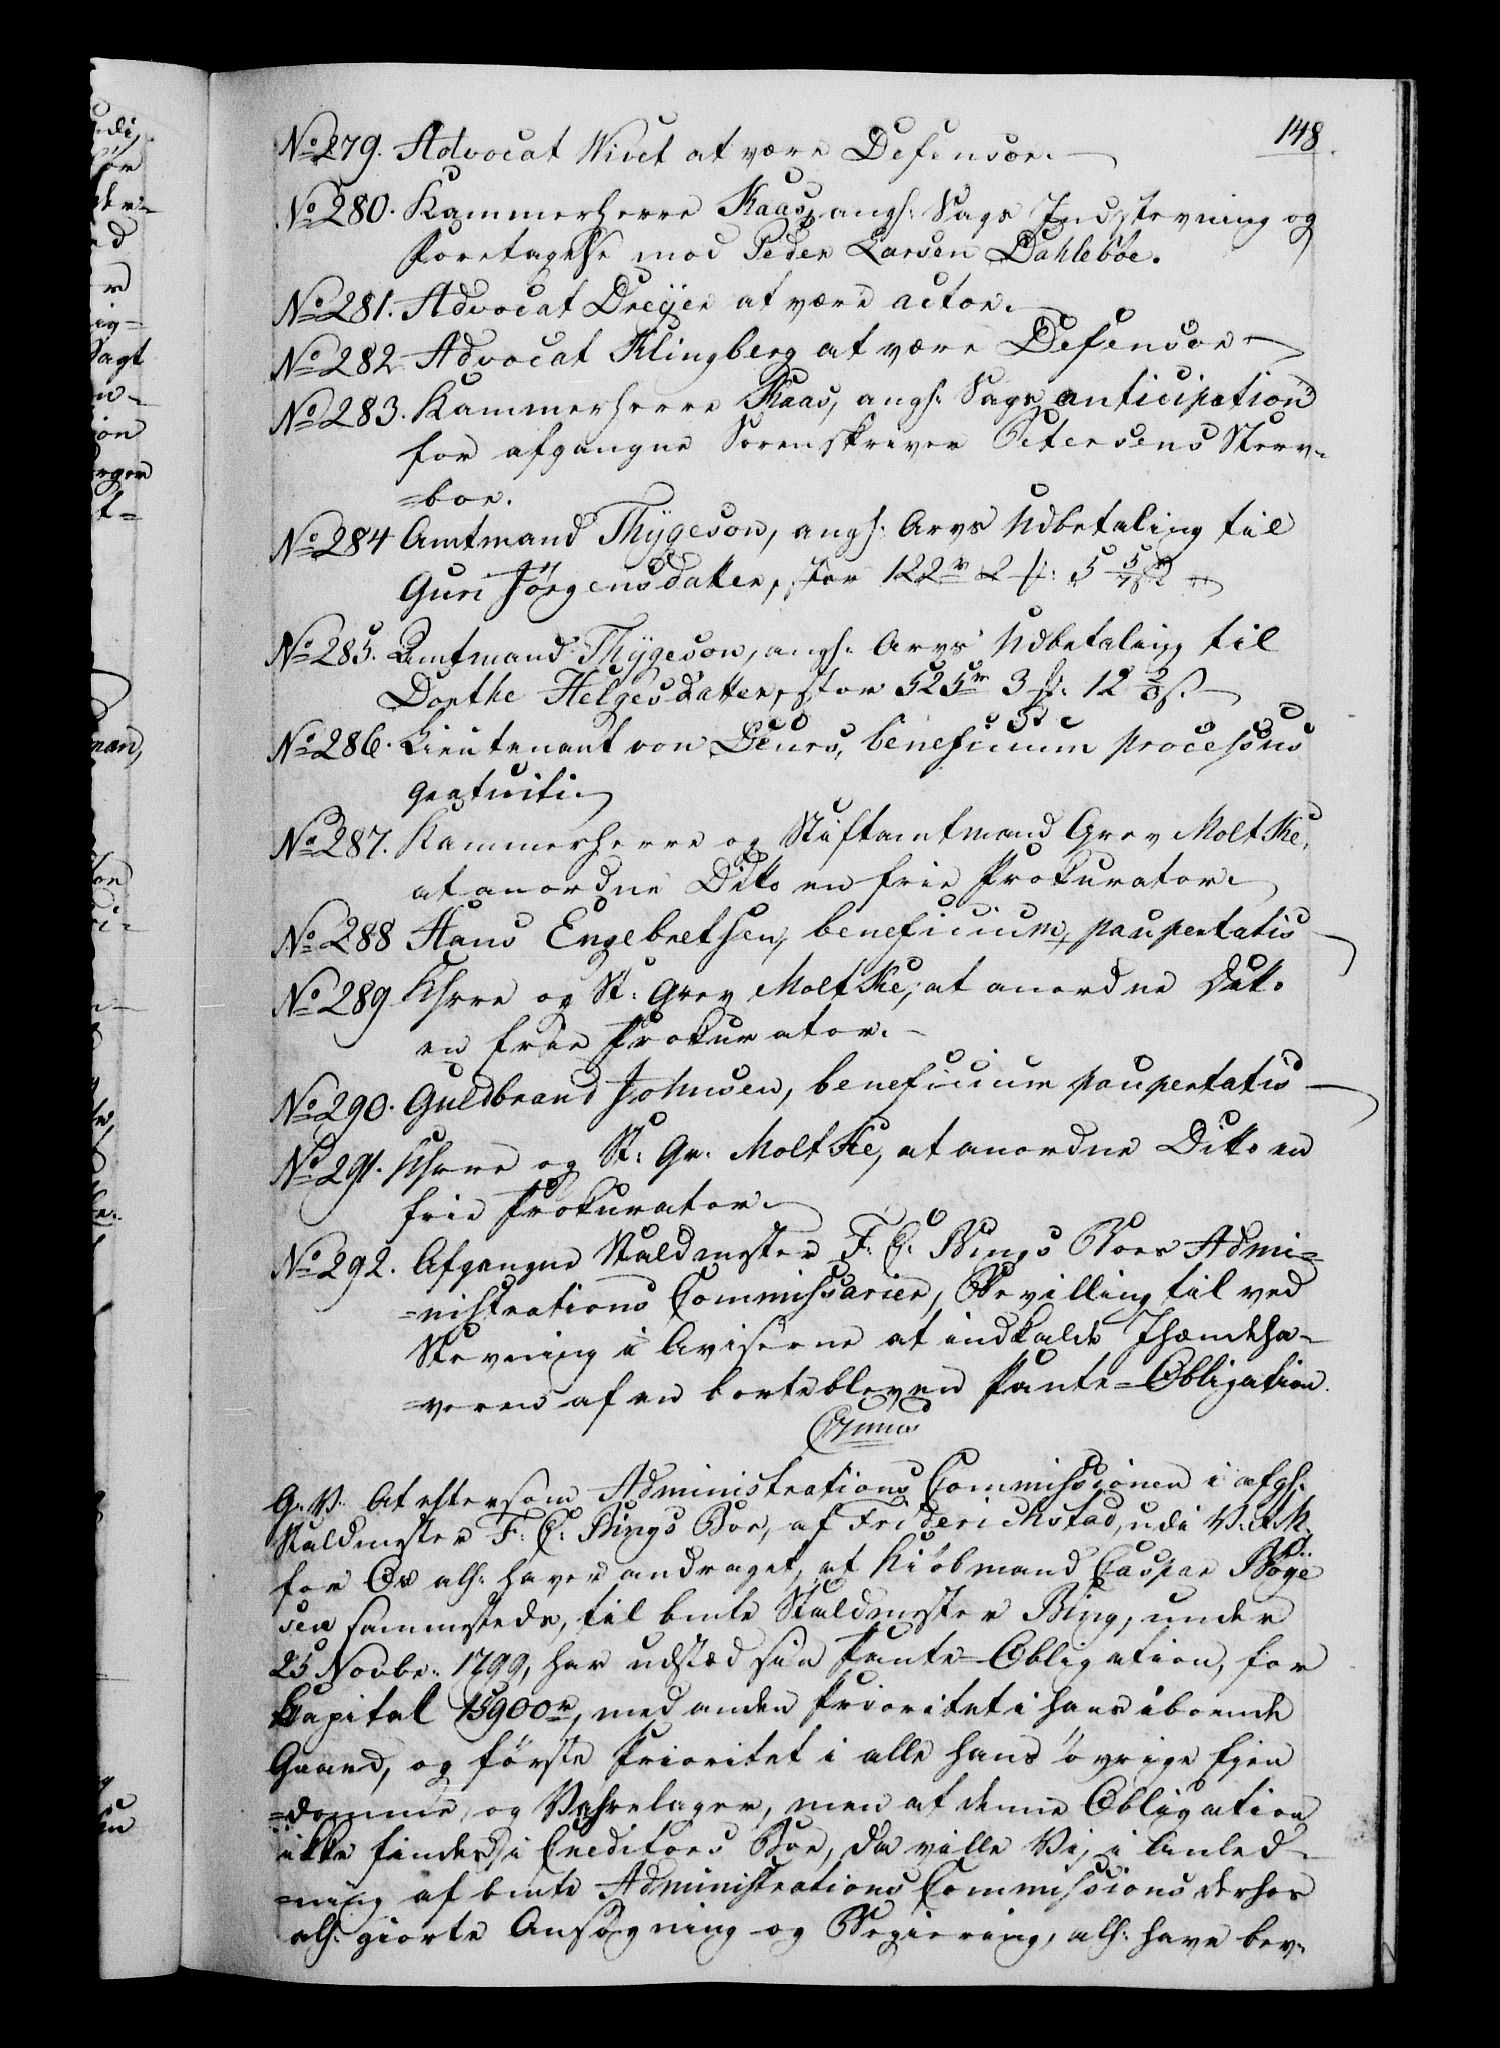 148
No 279. Advocat Wivet at være Defensor.
No 280. Kammerherre Kaas, angh: Sags Indstevning og
Foretagelse mod Peder Larsen Dahleböe.
No 281. Advocat Dreÿer at være actor.
No 282 Advocat Klingberg at være Defensor
No 283. Kammerherre Kaas, angh: Sags anticipation
for afgangne Sorenskriver Petersens Sterv-
=boe.
No 284 Amtmand Thÿgeson, angh: Arvs Udbetaling til
Guri Jörgensdatter, stor 122 r 2 f: 5 5/7 s.
No 285. Amtmand Thÿgeson, angh: Arvs Udbetaling til
Dorthe Helgesdatter, stor 525 r 3 f: 12 s.
No 286. Lieutenant von Deurs, beneficium processus
gratuiti.
No 287. Kammerherre og Stiftamtmand Grev Moltke,
at anordne Ditto en frie Prokurator.
No 288 Hans Engebretsen, beneficium paupertatis
No 289. Khrre og St: Grev Moltke, at anordne Dito
en frie Prokurator.
No 290. Guldbrand Johnsen, beneficium paupertatis
No 291. Khrre og St: Gr. Moltke, at anordne Ditto en
frie Prokurator.
No 292. Afgangne Staldmester F: C: Bings Boes Admi=
=nistrations Commissarier, Bevilling til ved
Stevning i Aviserne at indkalde Ihændeha-
=veren af en bortebleven Pante=Obligation.
G: V: At eftersom Administrations Commissionen i afgh:
Staldmester F: C: Bings Boe, af Friderichstad, udi V: R: N:
for Os alh: haver andraget, at Kiöbmand Caspar Böÿe
sen sammesteds, til bmte Staldmester Bing, under
25 Novbr: 1799, har udstæd sin Pante=Obligation, for
Kapital 15900 r, med anden Prioritet i hans iboende
Gaard, og förste Prioritet i alle hans övrige Ejen
=domme og Vahrelager, men at denne Obligation
ikke findes i Creditors Boe, da ville Vi, i Anled-
=ning af bmte Administrations Commissions derhos
alh: giorte Ansögning og Begiering, alh: have bev-